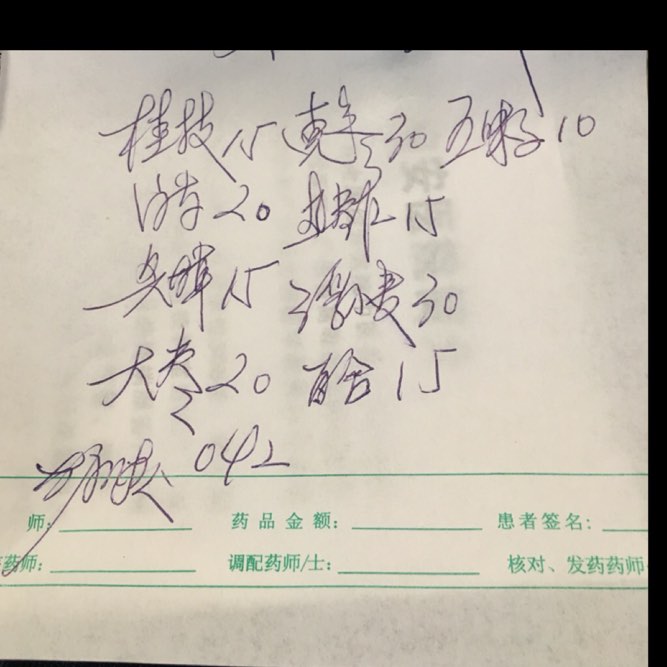 桂枝 15 黄芪 30 五味子 10
白芍 20 15
15 浮小麦 30
大枣 20 百合 15
042
师: 药品金额: 患者签名:
药师: 调配药师/士: 核对、发药药师